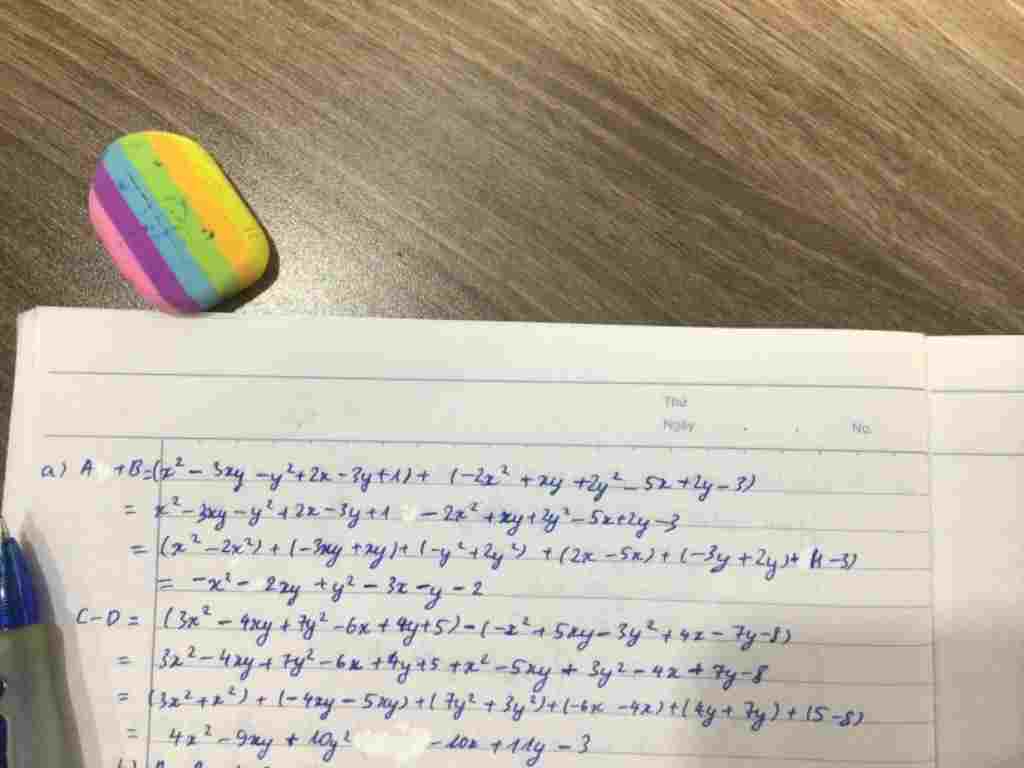 Thứ
Ngày No.
a) A + B = (x² - 3xy - y² + 2x - 3y + 1) + (-2x² + xy + 2y² - 5x + 2y - 3)
= x² - 3xy - y² + 2x - 3y + 1 - 2x² + xy + 2y² - 5x + 2y - 3
= (x² - 2x²) + (-3xy + xy) + (-y² + 2y²) + (2x - 5x) + (-3y + 2y) + (1 - 3)
= -x² - 2xy + y² - 3x - y - 2
C - D = (3x² - 4xy + 7y² - 6x + 4y + 5) - (-x² + 5xy - 3y² + 4x - 7y - 8)
= 3x² - 4xy + 7y² - 6x + 4y + 5 + x² - 5xy + 3y² - 4x + 7y - 8
= (3x² + x²) + (-4xy - 5xy) + (7y² + 3y²) + (-6x - 4x) + (4y + 7y) + (5 - 8)
= 4x² - 9xy + 10y² - 10x + 11y - 3